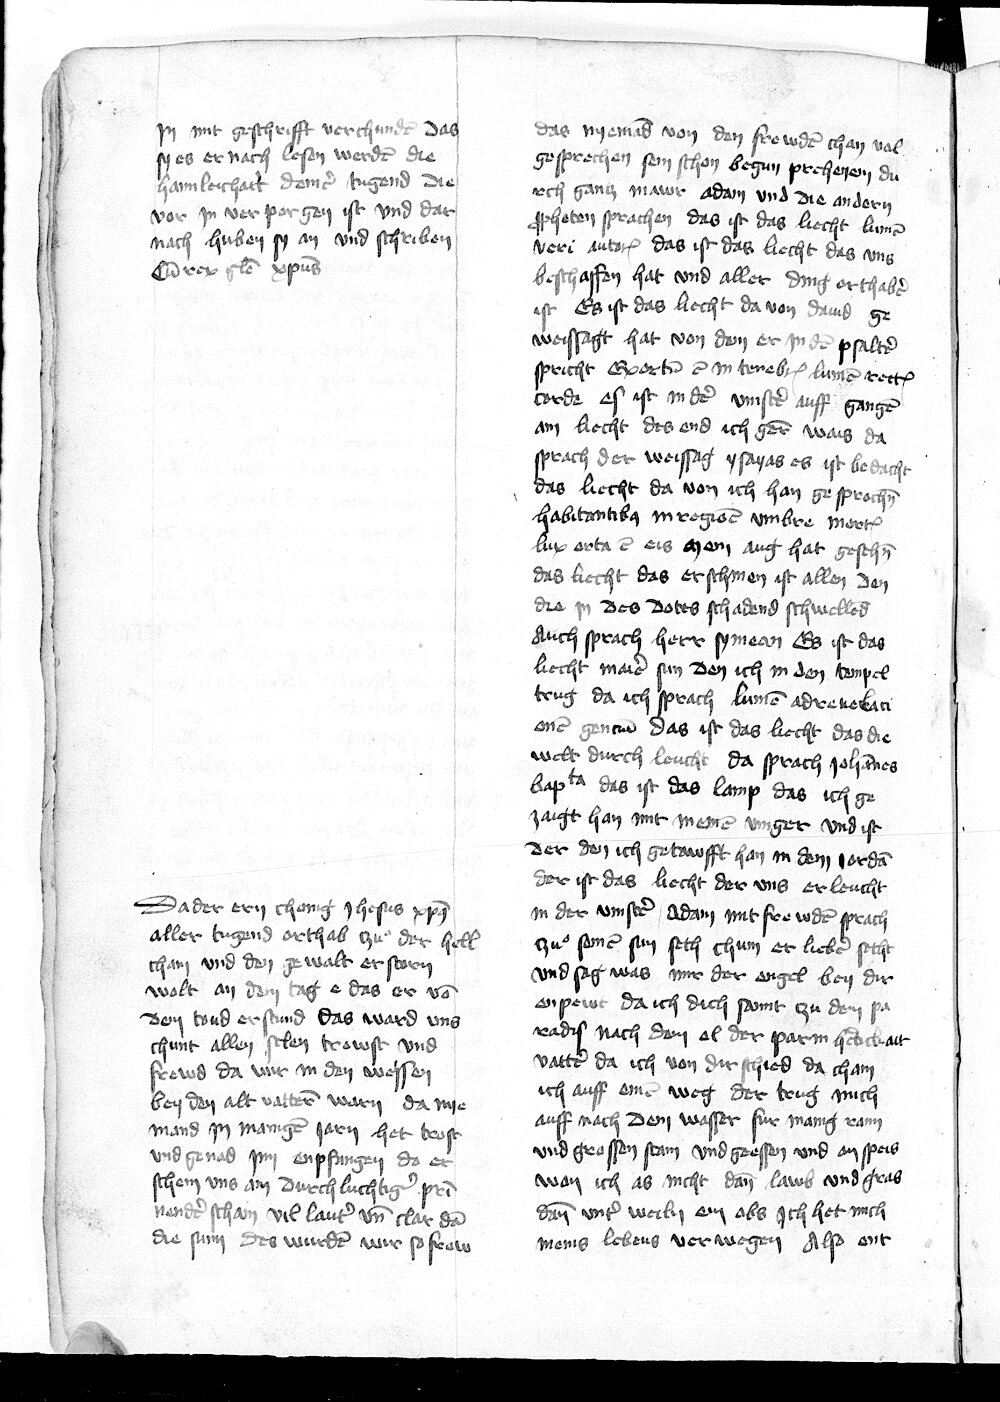 in mit geschrifft verchundē Das
sy es er nach lesen werdē die
haimleichait deinē tugend Die
vor in ver porgen ist und dar
nach huben sy an und schriben
Cū rex glē xpūs
Da der ern chonig Jhesus xpūs
aller tugend orthab czuͦ der hell
cham und den gewalt erstorn
wolt an dem tag e das er vō
dem toud erstund das ward uns
chunt allen selen trewst und
frewd da wir in den weissen
bey den alt vattern warn da nie
mand in manigē jarn het trost
und genad Im enpfangen da er
schein uns ain Durchluchtigʾ pri
nendʾ schein vil lautʾ vn̄ clar dā
die sunn des wurdē wir so frew
das nyemād von den frewdē chan vol
gesprechen sein schon begun prehenen du
rch gantz mawr adam und die andern
ꝓpheten sprachen das ist das liecht lumē
veri autoꝛ das ist das liecht das uns
beschaffen hat und aller ding orthabʾ
ist Es ist das liecht da von dauid ge
weissagt hat von dem er in dē psaltʾ
spricht Exortū ē in tenebꝛ lumē rectꝛ
corde es ist in dʾ vinstʾ auff gangē
ain liecht des end ich gʾn wais da
sprach der weissag ysayas es ist bedacht
das liecht da von ich han gesprochn̄
habitantibꝰ in regiōē umbre mortꝛ
lux orta ē eis Mein aug hat gesehn̄
das liecht das erschinen ist allen Den
die in des Dotes schadend schwelled
Auch sprach herr symeon Es ist das
liecht maiē sun Den ich in den tempel
trug da ich sprach lumē ad reuelaci
onē genciū Das ist das liecht das die
welt durch leucht da sprach Johānes
bapᵗᵃ das ist das lamp das ich ge
zaigt han mit meinē vinger und ist
Der den ich getawfft han in dem jordā
der ist das liecht der uns erleucht
in der vinstʾ Adam mit frewdē sprach
czuͦ seinē sun seth chum er liebʾ seth
und sag was mir der engel bey dir
enpewt da ich dich sannt czu dem pa
radis nach dem el der parmhʾczichait
vattʾ da ich von dir schied da cham
ich auff einē weg der trug mich
auff nach dem wasser fur manig rain
und grossen stain und gressen und an speis
wen ich as nicht dan̄ lawb und gras
dan̄ untʾ weiln ein obs Ich het mich
meins lebens verwegen Also ent